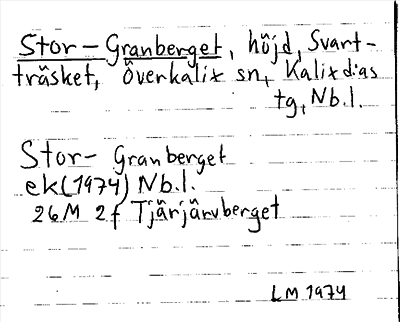 Stor-Granberget, höjd, Svart-
träsket, Överkalix sn, Kalix d:as
tg, Nb.l.
Stor- Granberget
ek(1974) Nb.l.
26M 2f Tjärjärvberget
LM 1974